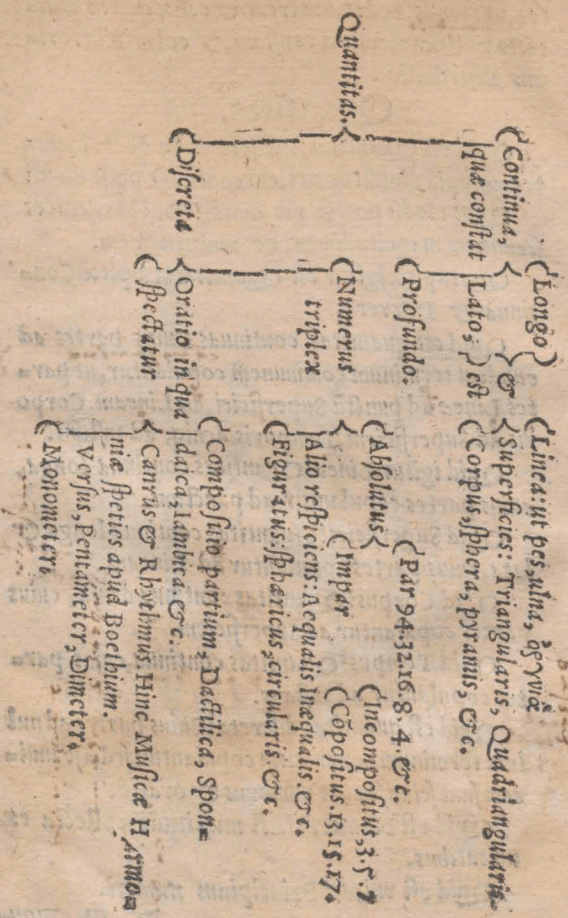 Quantitas.
Continua,
quæ conſtat
Longo
Lato
Profundo.
&
eſt
Linea: ut pes, ulna,
Superficies: Triangularis, Quadriangularis.
Corpus, ſphæra, pyramis, &c.
Diſcreta
Numerus
triplex
Abſolutus
Par 94.32.16.8.4. &c.
Impar
Incompoſitus, 3.5.7
Cōpoſitus. 13.15.17.
Alio reſpiciens: Aequalis Inæqualis. &c.
Figuratiuus, ſphæricus, circularis &c.
Oratio in qua
ſpectatur
Compoſitio partium, Dactilica, Spon=
daica, Iambica &c.
Cantus & Rhythmus Hinc Muſicæ Harmo=
niæ ſpecies apud Boethium.
Verſus, Pentameter, Dimeter,
Monometer.